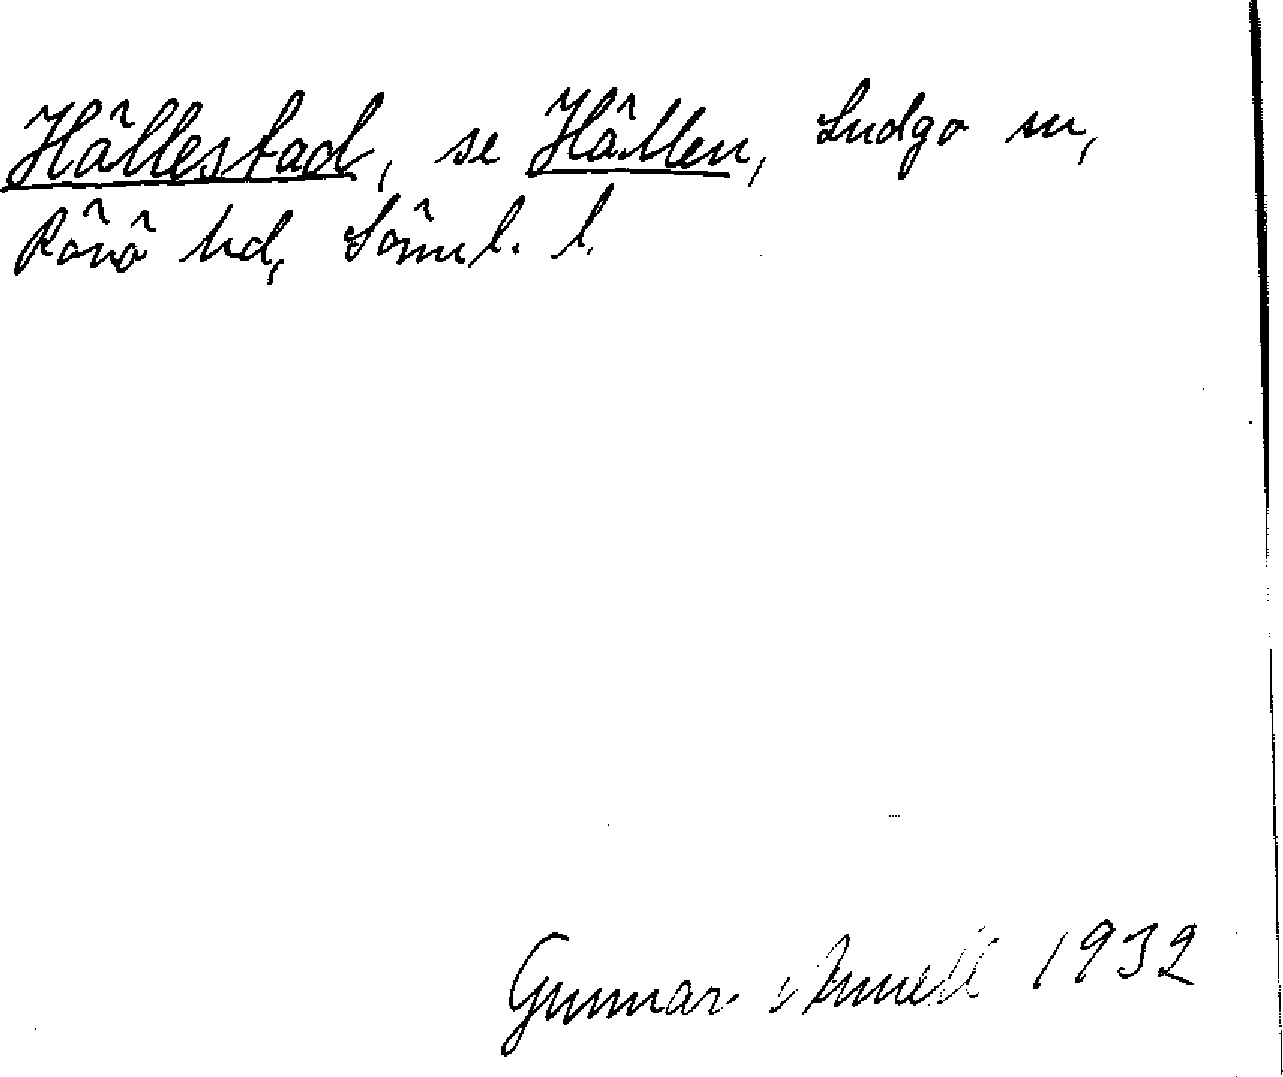 Hällestad, se Hällen, Ludgo sn,
Rönö hd, Söml. l.
Gunnar Annell 1932